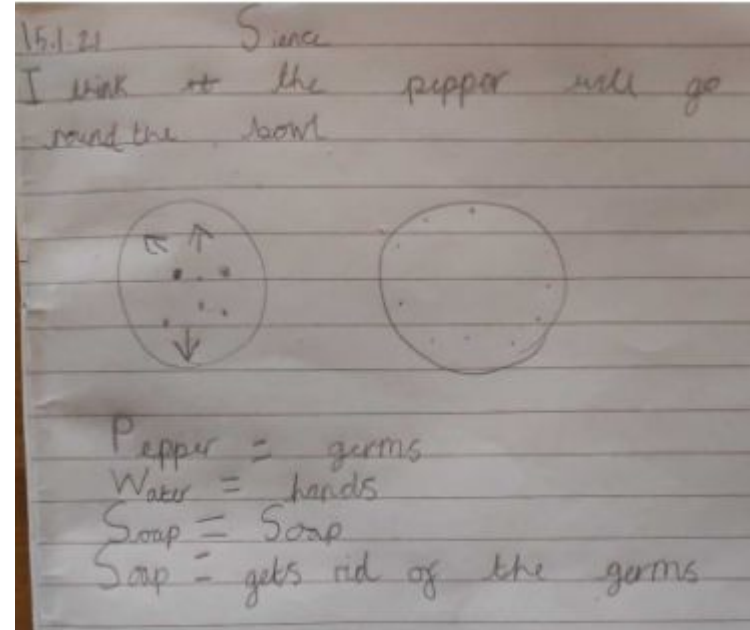 15.1.21 Sience
I think the pepper will go
round the bowl
Pepper = germs
Water = hands
Soap = Soap
Soap = gets rid of the germs